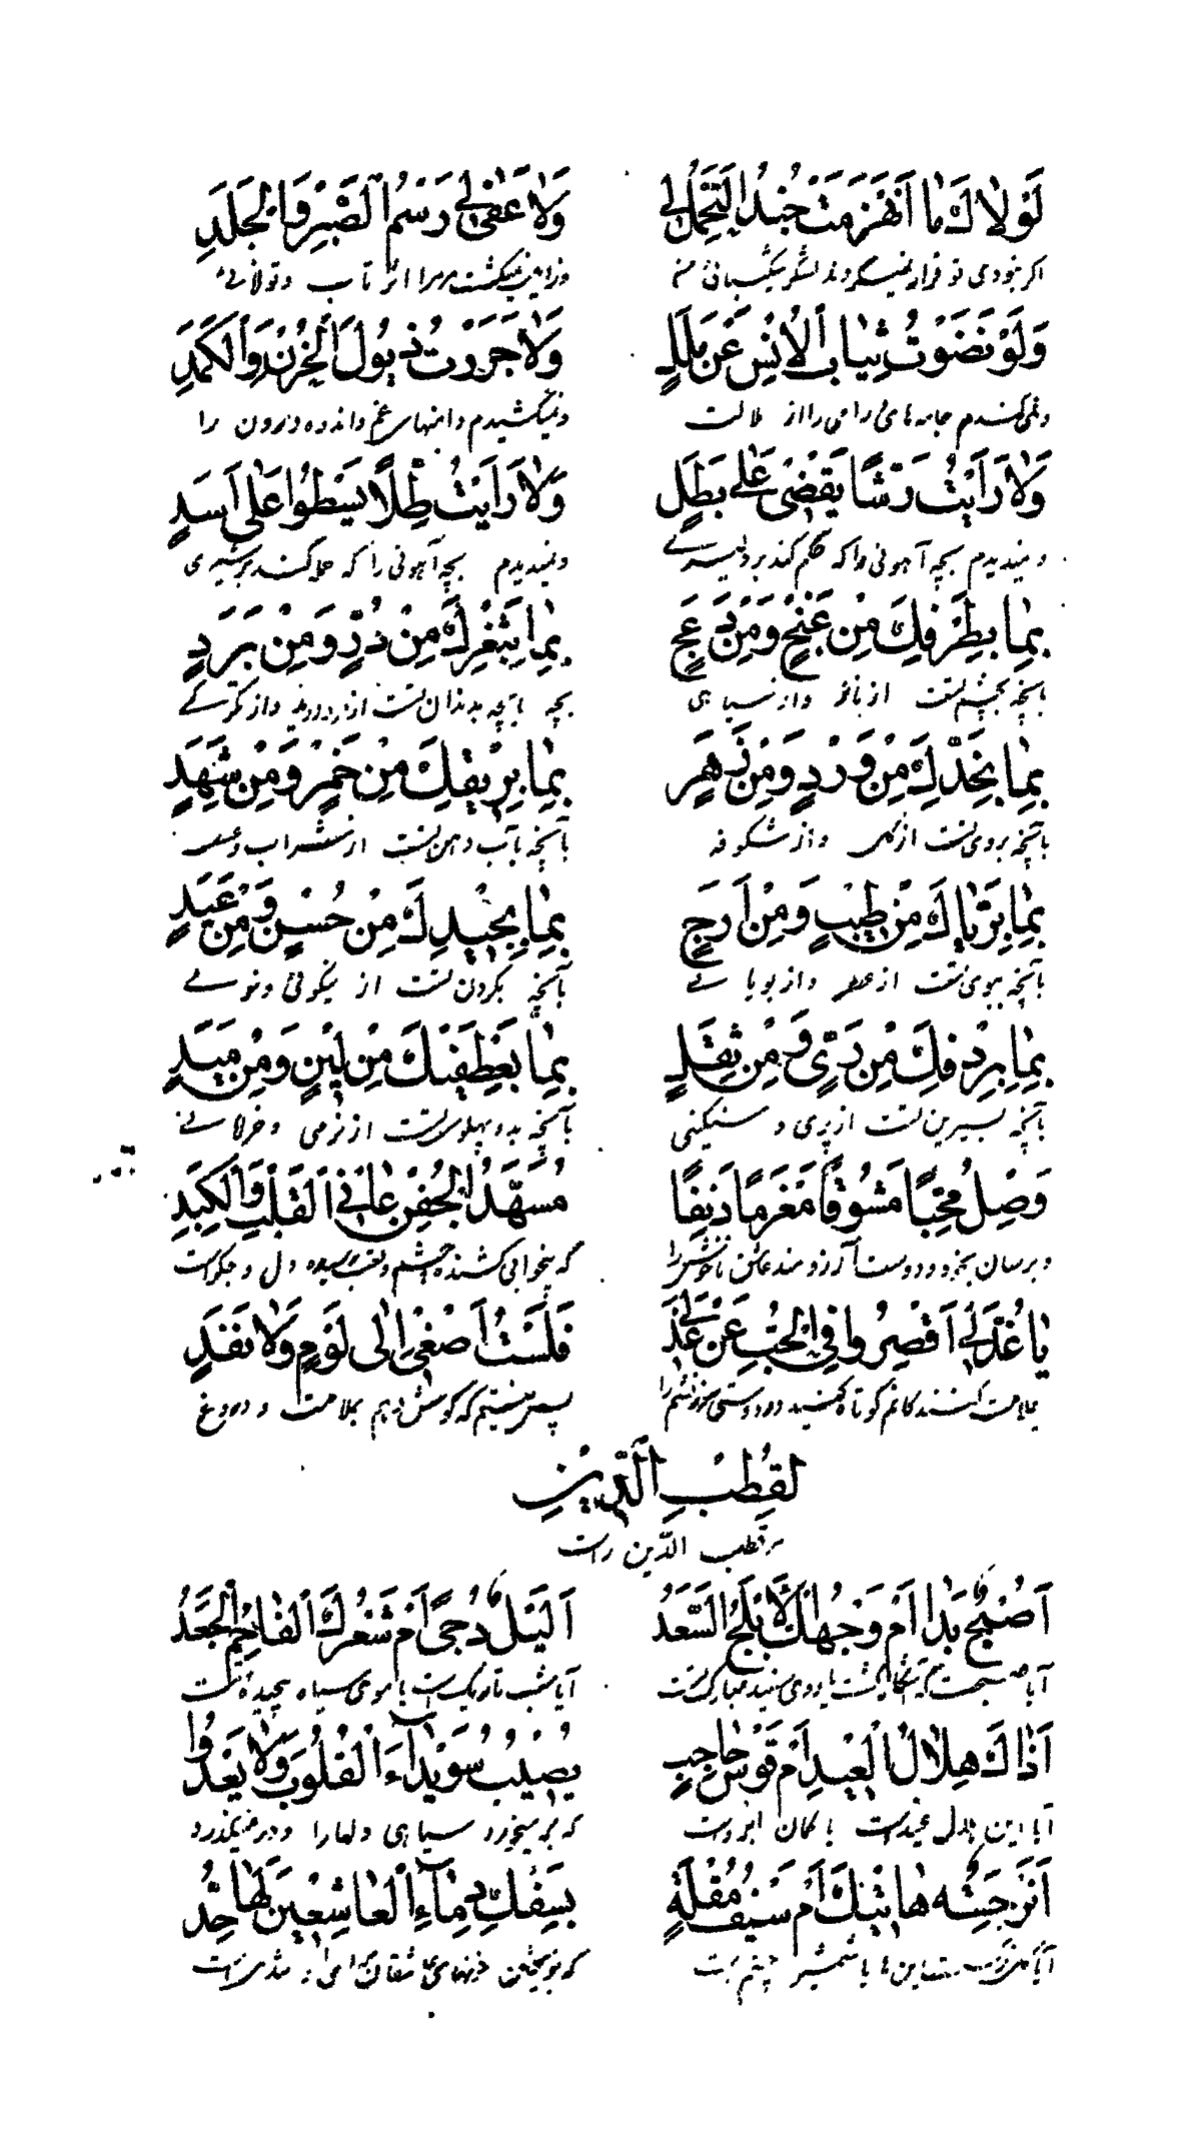 لَوْلاكَ مَا انْهَزَمَتْ جُنْدُ التَّجَمُّلِ لِي وَلا عَفىٰ لِي رَسْمُ الصَّبْرِ وَالْجَلَدِ
اگر نبودی تو فرار نمیکردند لشکر شکیبائی من تاب و توانائی
وَلَوْ نَضَوْتُ ثِيَابَ الْأُنْسِ عَنْ مَلَلٍ وَلا جَرَرْتُ ذُيُولَ الْحُزْنِ وَالْكَمَدِ
و نمی‌کندم جامه‌های رامی را از ملالت و نمیکشیدم دامنهای غم و اندوه درون را
وَلا رَأَيْتُ رَشًا يَقْضِي عَلىٰ بَطَلٍ وَلا رَأَيْتُ طِلًا يَسْطُو عَلىٰ أَسَدٍ
و نمیدیدم بچه آهوئی را که حکم کند بر دلیری و نمیدیدم بچه آهوئی را که حمله کند بر شیری
بِمَا بِطَرْفِكَ مِنْ غَنَجٍ وَمِنْ دَعَجٍ بِمَا بِثَغْرِكَ مِنْ دُرٍّ وَمِنْ بَرَدٍ
بآنچه بچشم تست از ناز و از سیاهی بآنچه بدندان تست از مروارید و از تگرگ
بِمَا بِخَدِّكَ مِنْ وَرْدٍ وَمِنْ زَهَرٍ بِمَا بِرِيقِكَ مِنْ خَمْرٍ وَمِنْ شَهَدٍ
بآنچه بروی تست از گل و از شکوفه بآنچه بآب دهن تست از شراب و عسل
بِمَا بِرَيَّاكَ مِنْ طِيبٍ وَمِنْ أَرَجٍ بِمَا بِجِيدِكَ مِنْ حُسْنٍ وَمِنْ غَيَدٍ
بآنچه ببوی تست از عطر و از بویائی بآنچه بگردن تست از نیکوئی و نرمی
بِمَا بِرِدْفِكَ مِنْ رَيٍّ وَمِنْ ثِقَلٍ بِمَا بِعَطْفِكَ مِنْ لِينٍ وَمِنْ مَيَدٍ
بآنچه بسرین تست از پری و سنگینی بآنچه بدو پهلوی تست از نرمی و خرامانی
وَصِلْ مُحِبًّا مَشُوقًا مُغْرَمًا دَنِفًا مُسَهَّدَ الْجَفْنِ عَانِي الْقَلْبِ وَالْكَبِدِ
و برسان بخود دوست آرزومند عاشق ناخوش را که بیخوابی کشنده چشم دل و جگر است
يَا عُذَّلِي أَقْصِرُوا فِي الْحُبِّ عَنْ عَذَلِي فَلَسْتُ أَصْغِي إِلىٰ لَوْمٍ وَلا فَنَدٍ
ملامت کنندگانم کوتاه کنید در دوستی سرزنشم را پس نیستم که گوش دهم بملامت و دروغ
لِقُطْبِ الدِّينِ
مر قطب الدین راست
أَصُبْحٌ بَدَا أَمْ وَجْهُكَ الْأَبْلَجُ السَّعْدُ أَلَيْلٌ دُجىً أَمْ شَعْرُكَ الْفَاحِمُ الْجَعْدُ
آیا صبح است آشکار گشت یا روی سفید مبارک تست آیا شب تاریک است یا موی سیاه پیچیده تست
أَذَاكَ هِلَالُ الْعِيدِ أَمْ قَوْسُ حَاجِبٍ يُصِيبُ سُوَيْدَاءَ الْقُلُوبِ وَلا يَعْدُو
آیا این هلال عید است یا کمان ابرو است که بر میخورد سیاهی دلها را و در نمیگذرد
أَنَرْجِسَةٌ هَاتِيكَ أَمْ سَيْفُ مُقْلَةٍ بِسَفْكِ دِمَاءِ الْعَاشِقِينَ لَهَا حَدُّ
آیا نرگس است این یا شمشیر چشم است که بریختن خونهای عاشقان